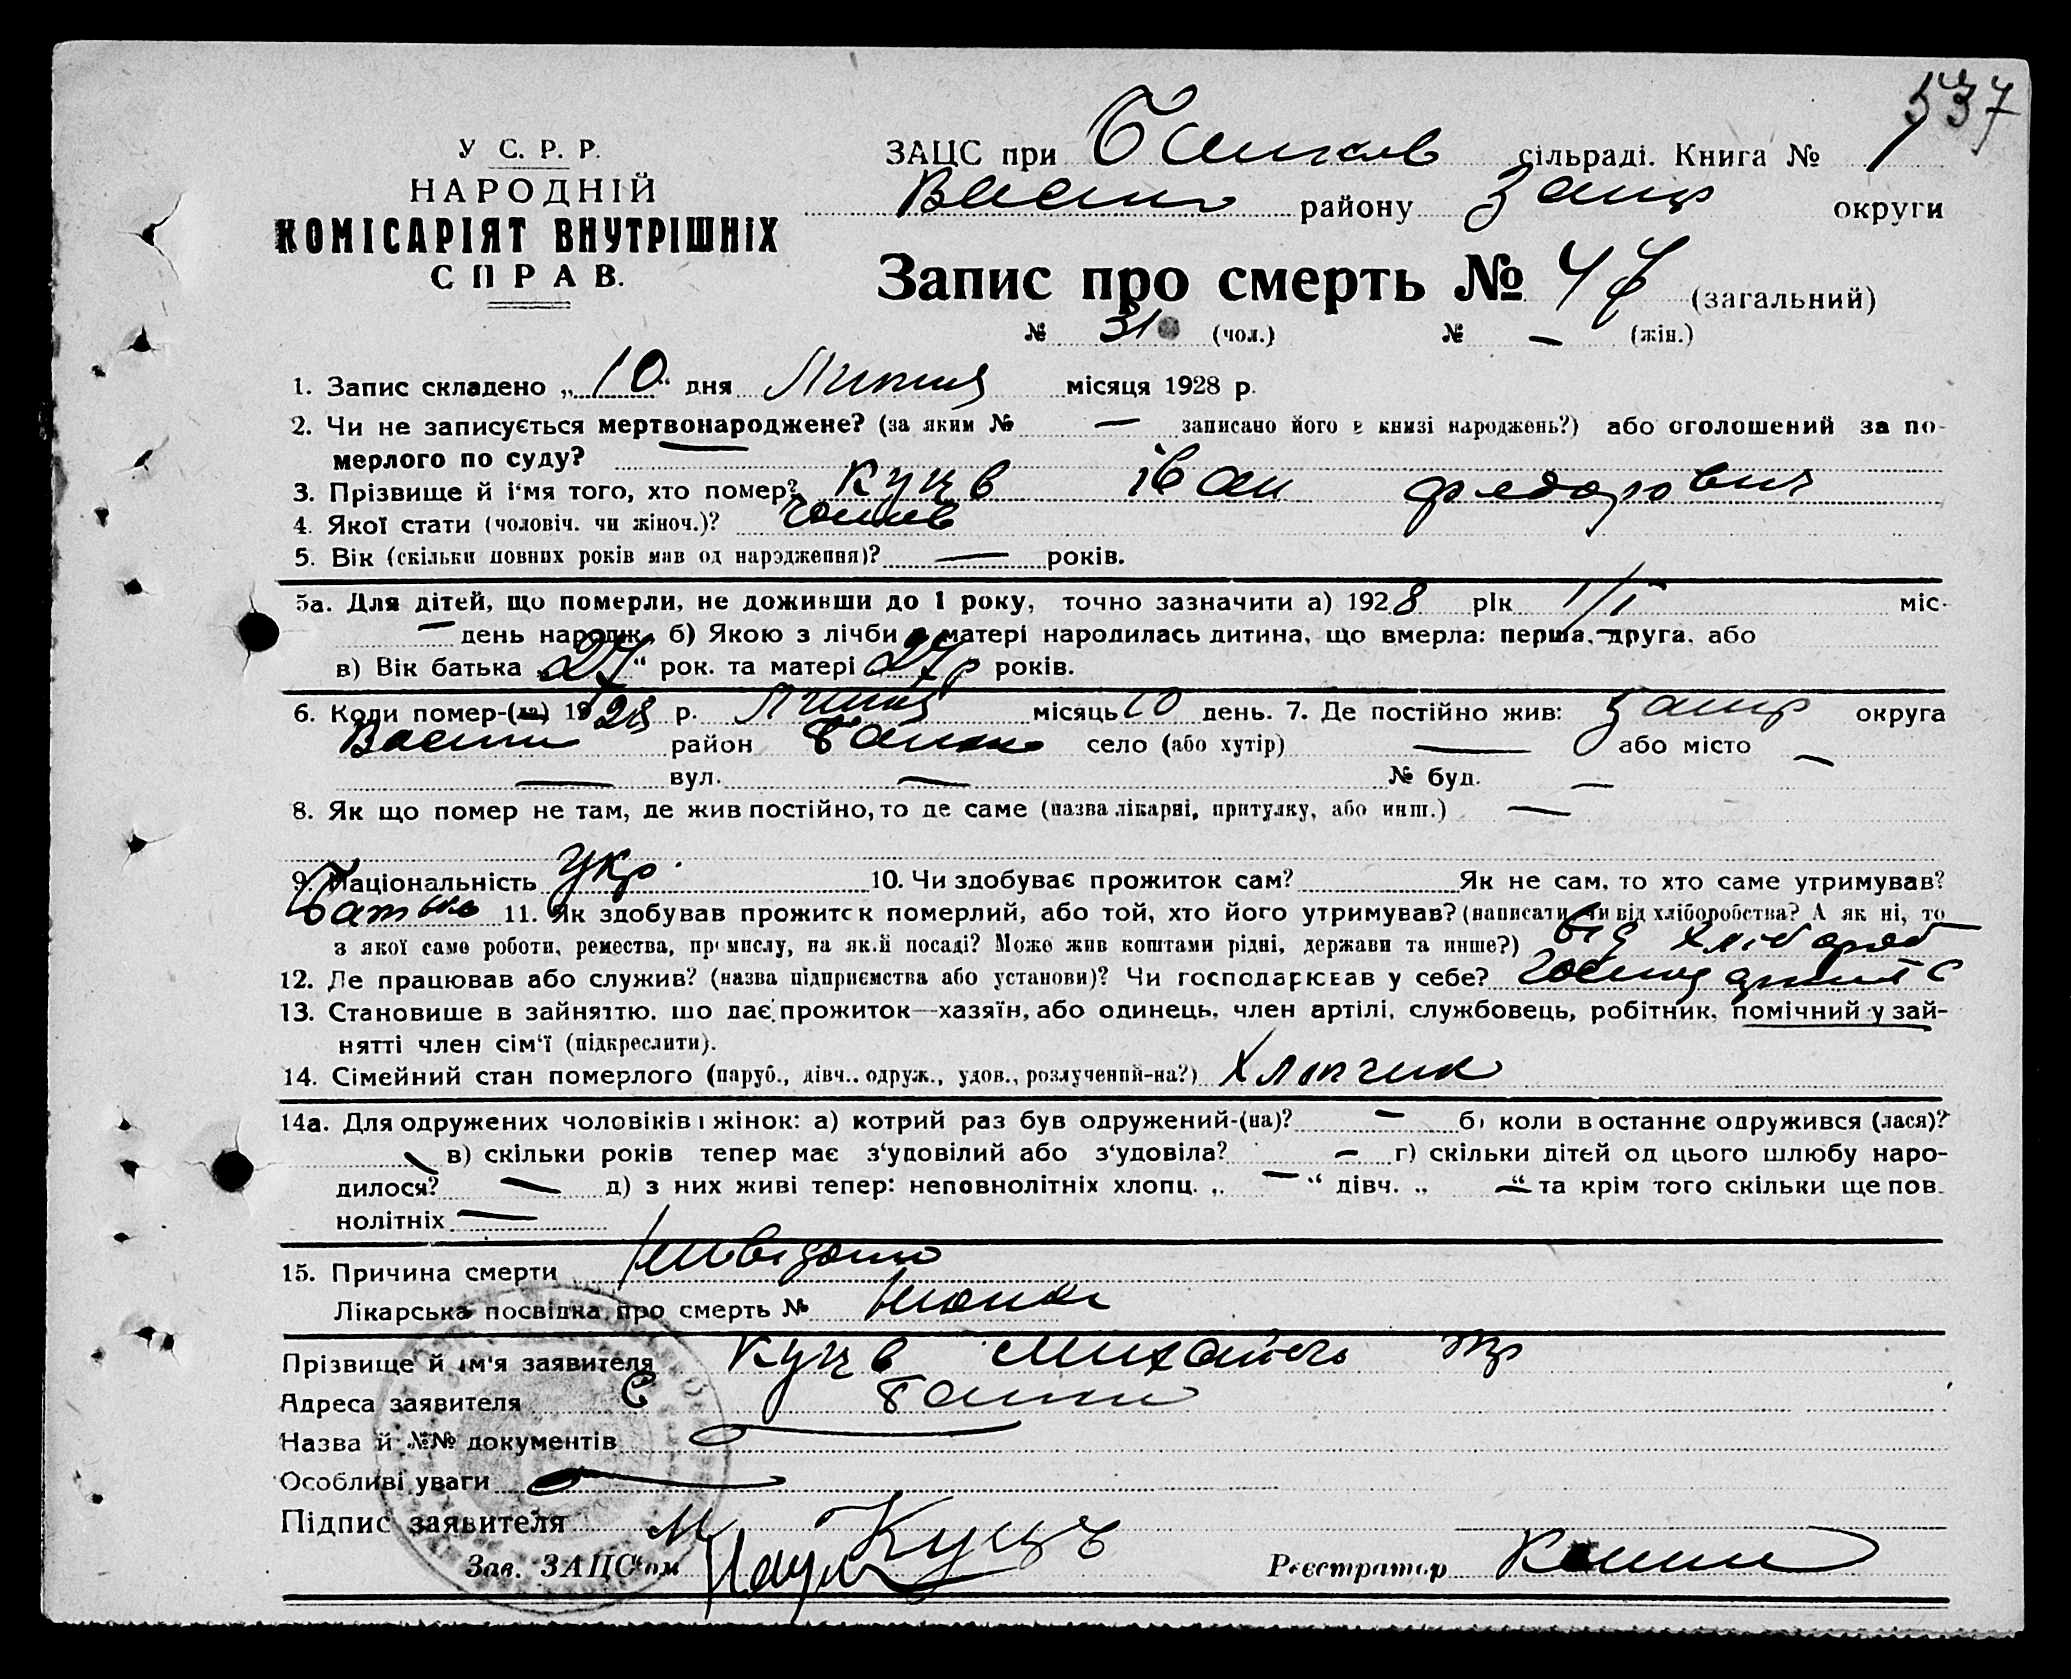 537
У С. Р. Р.
НАРОДНІЙ
КОМІСАРІЯТ ВНУТРІШНІХ
СПРАВ.
ЗАЦС при сільраді. Книга № 1
району округи
Запис про смерть № 47 (загальний)
№ 31 (чол.) № — (жін.)
1. Запис складено „10“ дня Липня місяця 1928 р.
2. Чи не записується мертвонароджене? (за яким № — записано його в книзі народжень?) або оголошений за по-
мерлого по суду?
3. Прізвище й і'мя того, хто помер? Куцв іван федорович
4. Якої стати (чоловіч. чи жіноч.)?
5. Вік (скільки повних років мав од народження)? — років.
5а. Для дітей, що померли, не доживши до 1 року, точно зазначити а) 1928 рік 1/I міс-
— день народж. б) Якою з лічби у матері народилась дитина, що вмерла: перша, друга, або
в) Вік батька „27“ рок. та матері 27 р років.
6. Коли помер-(ла) 1928 р. Липня місяць 10 день. 7. Де постійно жив: округа
район село (або хутір) — або місто —
— вул. — № буд. —
8. Як що помер не там, де жив постійно, то де саме (назва лікарні, притулку, або инш.) —
9. Національність укр. 10. Чи здобував прожиток сам? Як не сам, то хто саме утримував?
Батько 11. Як здобував прожиток померлий, або той, хто його утримував? (написати чи від хліборобства? А як ні, то
з якої саме роботи, ремества, промислу, на якій посаді? Може жив коштами рідні, держави та инше?) від хлібороб
12. Де працював або служив? (назва підприємства або установи)? Чи господарював у себе?
13. Становище в зайняттю, що дає прожиток—хазяїн, або одинець, член артілі, службовець, робітник, помічний у зай-
нятті член сім'ї (підкреслити).
14. Сімейний стан померлого (паруб., дівч., одруж., удов., розлучений-на?) Хлопчик
14а. Для одружених чоловіків і жінок: а) котрий раз був одружений-(на)? — б) коли востаннє одружився (лася)?
— в) скільки років тепер має з'удовілий або з'удовіла? — г) скільки дітей од цього шлюбу наро-
дилося? — д) з них живі тепер: неповнолітніх хлопц. „ — “ дівч. „ — “ та крім того скільки ще пов.
нолітніх —
15. Причина смерти Невідомо
Лікарська посвідка про смерть № Немає
Прізвище й ім'я заявителя Куцв Михайло
Адреса заявителя С
Назва й №№ документів —
Особливі уваги —
Підпис заявителя М Куцъ
Зав. ЗАЦС'ом Реєстратор